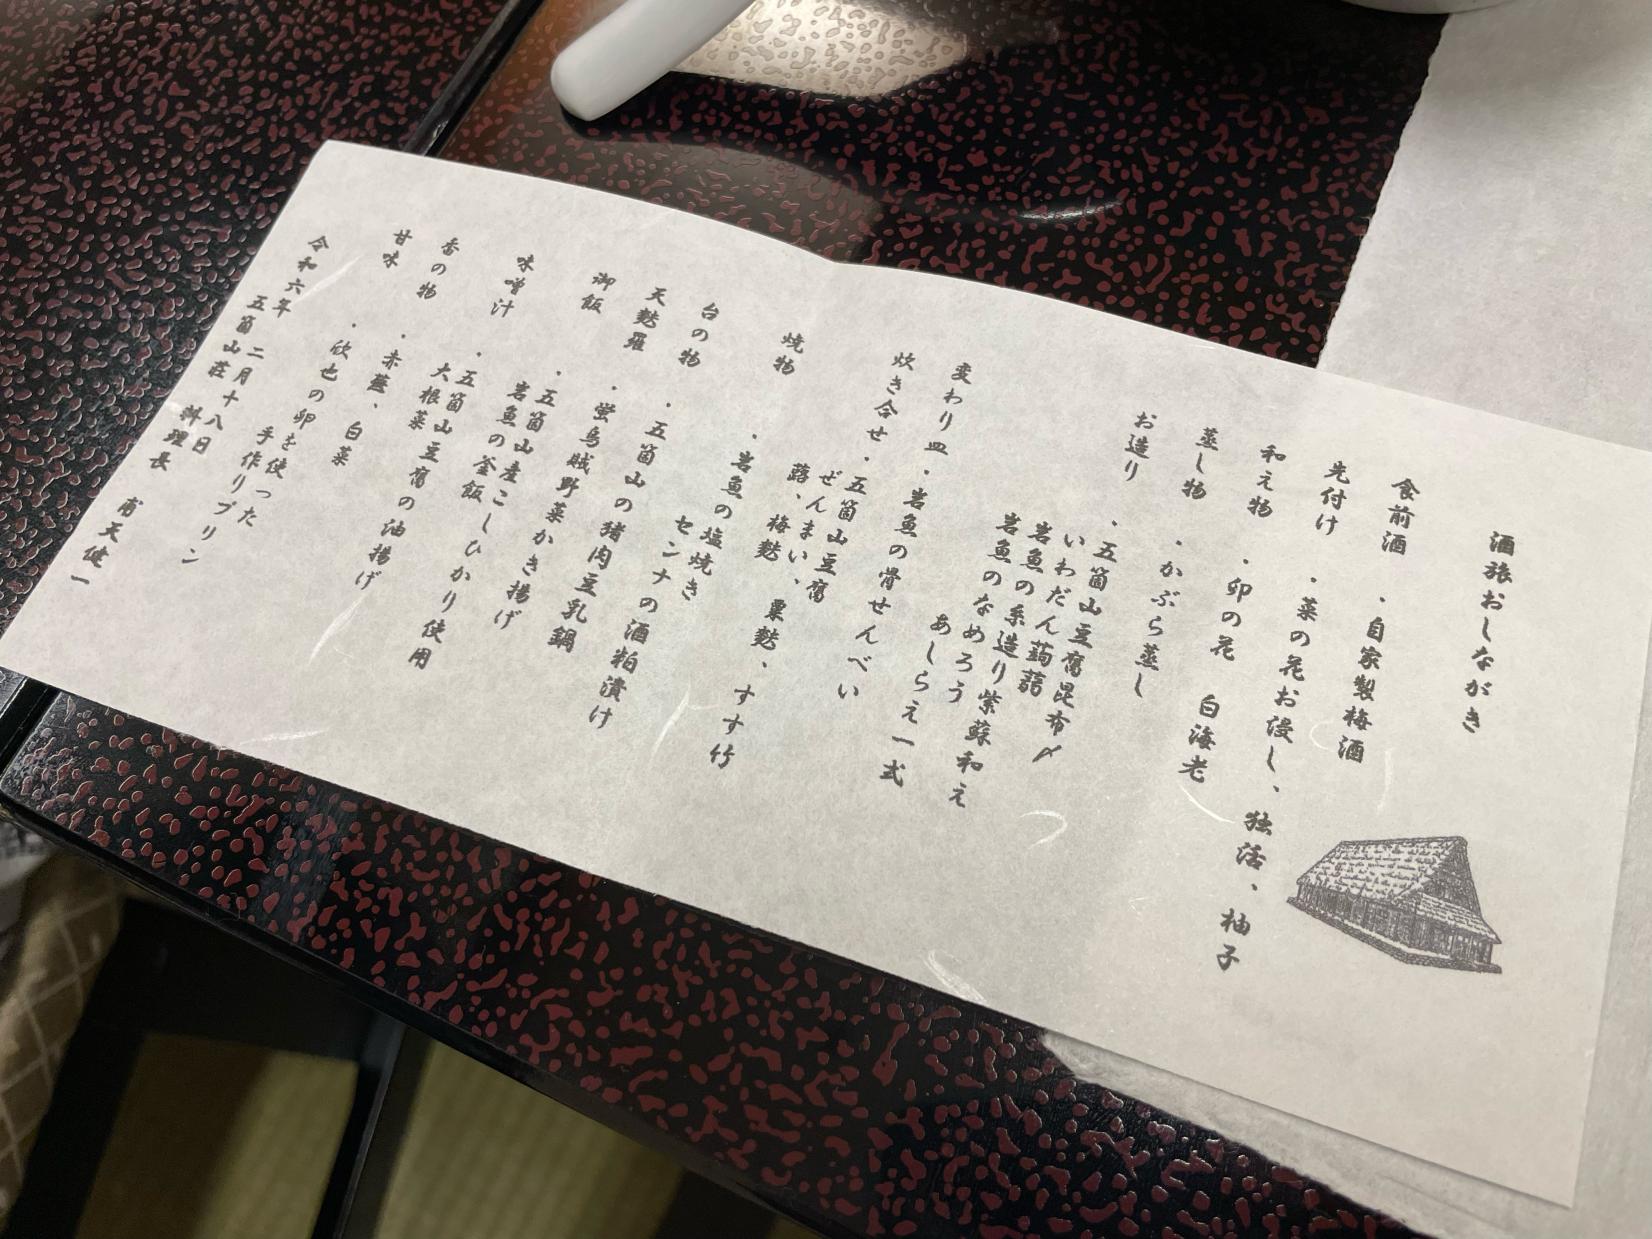 酒旅おしながき
食前酒 ・自家製梅酒
先付け ・菜の花お浸し、独活、柚子
和え物 ・卯の花 白海老
蒸し物 ・かぶら蒸し
お造り ・五箇山豆腐昆布〆
いわだん蒟蒻
岩魚の糸造り紫蘇和え
岩魚のなめろう
あしらえ一式
変わり皿・岩魚の骨せんべい
炊き合せ・五箇山豆腐
ぜんまい、粟麩、すす竹
蕗、梅麩
焼物 ・岩魚の塩焼き
センナの酒粕漬け
台の物 ・五箇山の猪肉豆乳鍋
天麩羅 ・蛍烏賊野菜かき揚げ
御飯 ・五箇山産こしひかり使用
岩魚の釜飯
味噌汁 ・五箇山豆腐の油揚げ
大根菜
香の物 ・赤蕪、白菜
甘味 ・欣也の卵を使った
手作りプリン
令和六年 二月十八日
五箇山荘 料理長